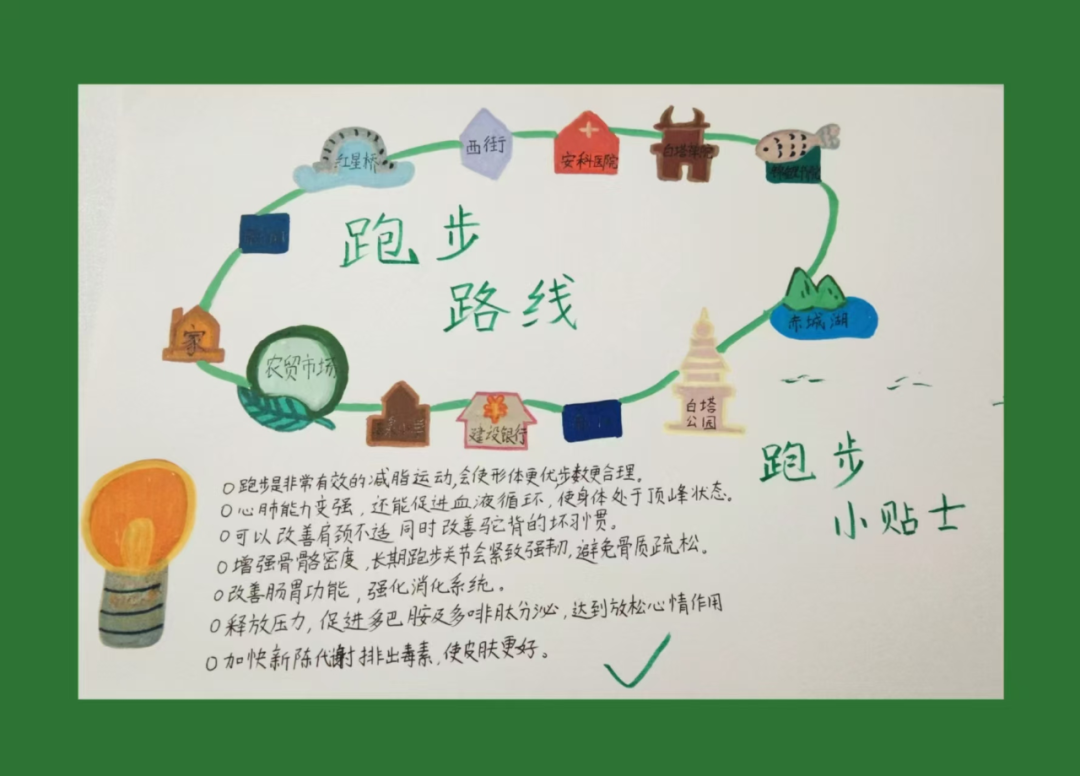 红星桥
西街
安科医院
白塔
家
跑步
路线
赤城湖
农贸市场
建设银行
白塔
公园
跑步
小贴士
跑步是非常有效的减脂运动,会使形体更优步数更合理。
心肺能力变强，还能促进血液循环，使身体处于顶峰状态。
可以改善肩颈不适 同时改善驼背的坏习惯。
增强骨骼密度，长期跑步关节会紧致强韧，避免骨质疏松。
改善肠胃功能，强化消化系统。
释放压力，促进多巴胺及多啡肽分泌，达到放松心情作用
加快新陈代谢排出毒素，使皮肤更好。